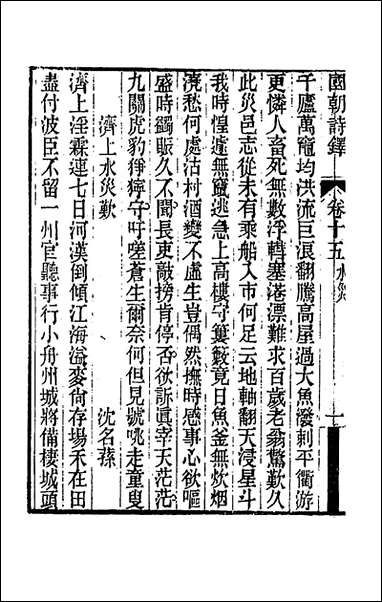 國朝詩鐸 卷十五 水災 一
千廬萬竈均洪流巨浪翻騰高屋過大魚潑剌平衢游
更憐人畜死無數浮轊塞港漂難求百歲老翁驚歎久
此災邑志從未有乘船入市何足云地軸翻天浸星斗
我時惶遽無竄逃急上高樓守簍簌竟日魚釜無炊烟
澆愁何處沽村酒變不虛生豈偶然撫時感事心欲嘔
盛時蠲賑久不聞長吏敲搒肯停否欲訴眞宰天茫茫
九關虎豹猙獰守吁嗟蒼生爾奈何但見號咷走童叟
濟上水災歎 沈名蓀
濟上淫霖連七日河漢倒傾江海溢麥尙存場禾在田
盡付波臣不留一州官聽事行小舟州城將備棲城頭